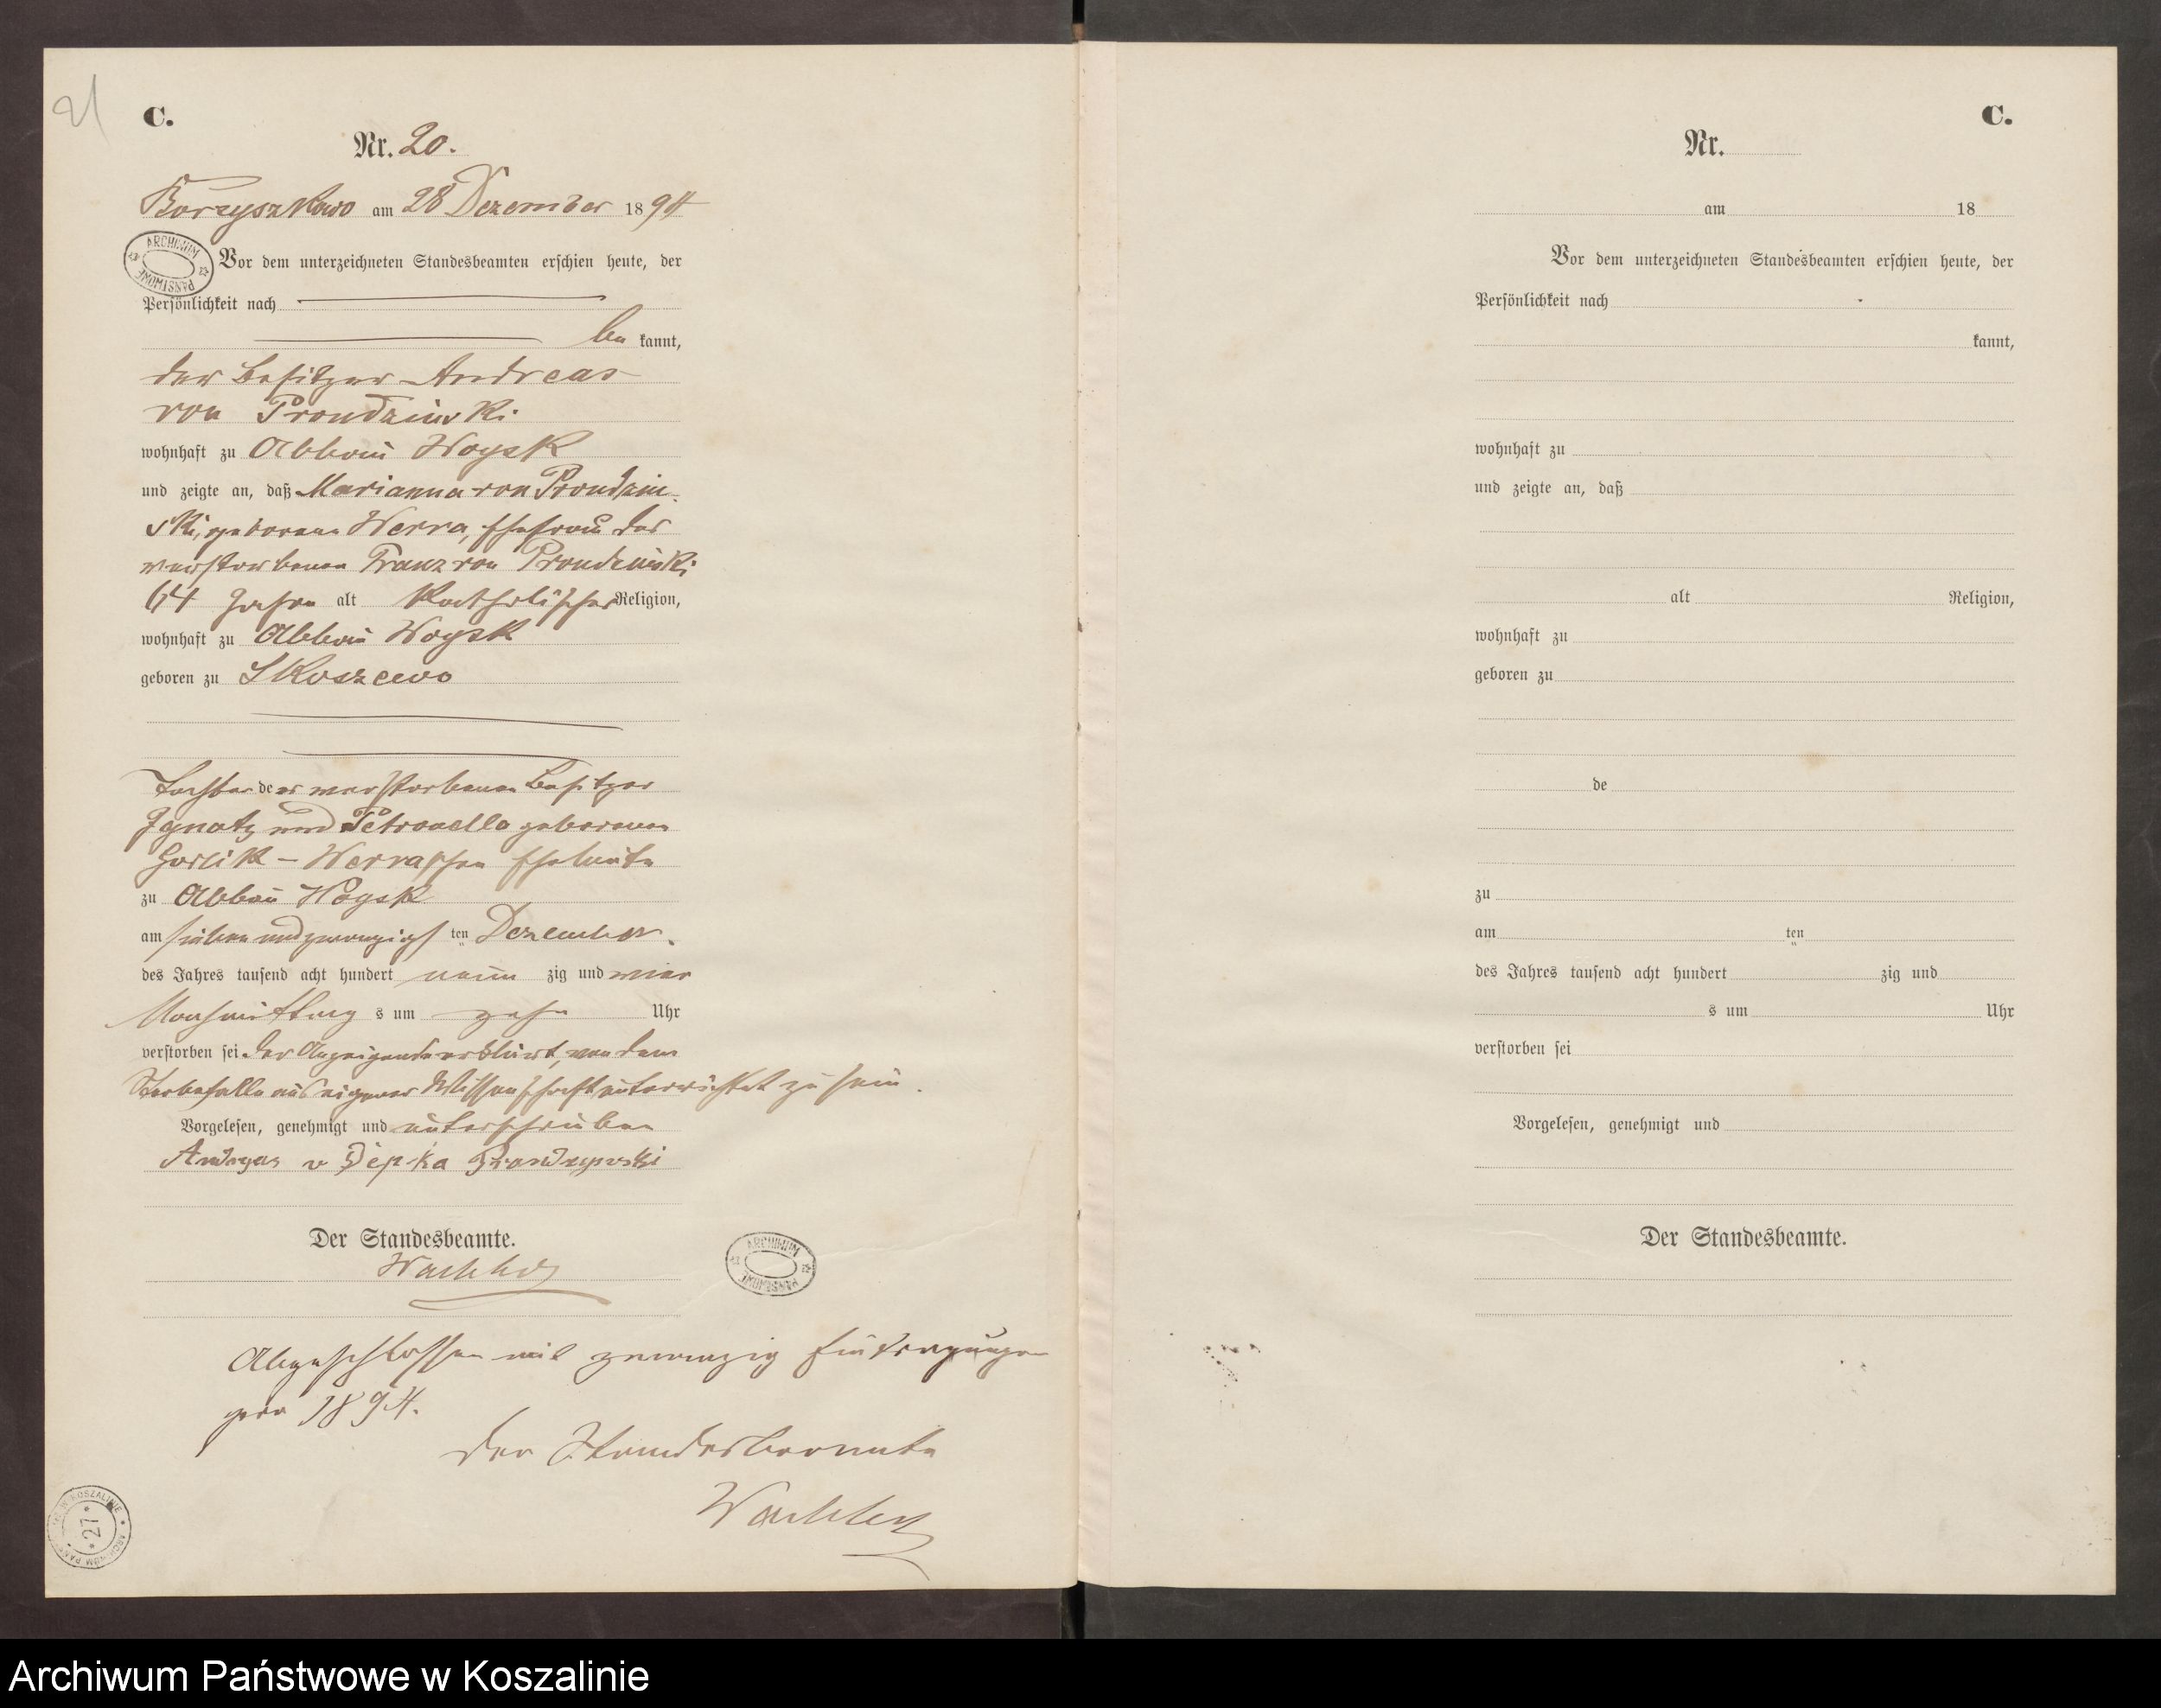 21
C.
Nr. 20.
Borzyszkowo am 28 Dezember 1894
ARCHIWUM PAŃSTWOWE
Vor dem unterzeichneten Standesbeamten erschien heute, der
Persönlichkeit nach
be kannt,
der Besitzer Andreas
von Prondzinski
wohnhaft zu Abbau Woysk
und zeigte an, daß Marianna von Prondzin-
ski, geborene Werra, Ehefrau des
verstorbenen Franz von Prondzinski
64 Jahre alt katholischer Religion,
wohnhaft zu Abbau Woysk
geboren zu Skoszewo
Tochter der verstorbenen Besitzer
Ignatz und Petronella geborenen
Gorlik - Werraschen Eheleute
zu Abbau Woysk
am sieben und zwanzigsten Dezember
des Jahres tausend acht hundert neun zig und vier
Nachmittag s um zehn Uhr
verstorben sei. Der Anzeigende erklärt, von dem
Sterbefalle aus eigener Wissenschaft unterrichtet zu sein.
Vorgelesen, genehmigt und unterschrieben
v
Der Standesbeamte.
ARCHIWUM PAŃSTWOWE
Abgeschlossen mit zwanzig Eintragungen
pro 1894.
Der Standesbeamte
ARCHIWUM PAŃSTW W KOSZALINIE
* 27 *
C.
Nr.
am 18
Vor dem unterzeichneten Standesbeamten erschien heute, der
Persönlichkeit nach
kannt,
wohnhaft zu
und zeigte an, daß
alt Religion,
wohnhaft zu
geboren zu
de
zu
am ten
des Jahres tausend acht hundert zig und
s um Uhr
verstorben sei
Vorgelesen, genehmigt und
Der Standesbeamte.
Archiwum Państwowe w Koszalinie